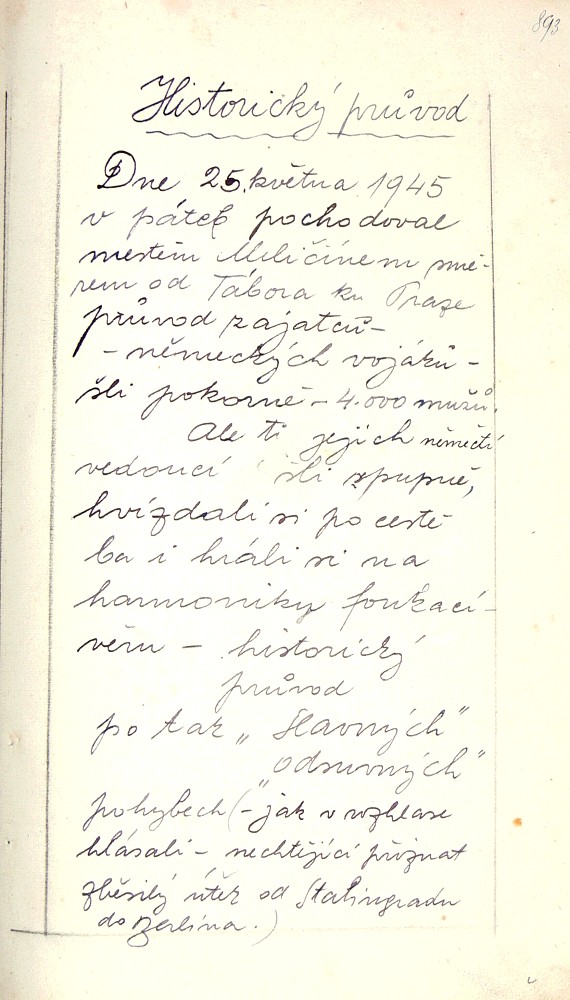 893
Historický průvod
Dne 25. května 1945
v pátek pochodoval
městem Miličínem smě-
rem od Tábora ku Praze
průvod zajatců -
- německých vojáků -
šli pokorně - 4.000 mužů.
Ale ti jejich němečtí
vedoucí šli zpupně,
hvízdali si po cestě
ba i hráli si na
harmoniky foukací -
věru - historický
průvod
po tak „slavných"
„odsuvných"
pohybech (- jak v rozhlase
hlásali - nechtějící přiznat
zběsilý útěk od Stalingradu
do Berlína.)